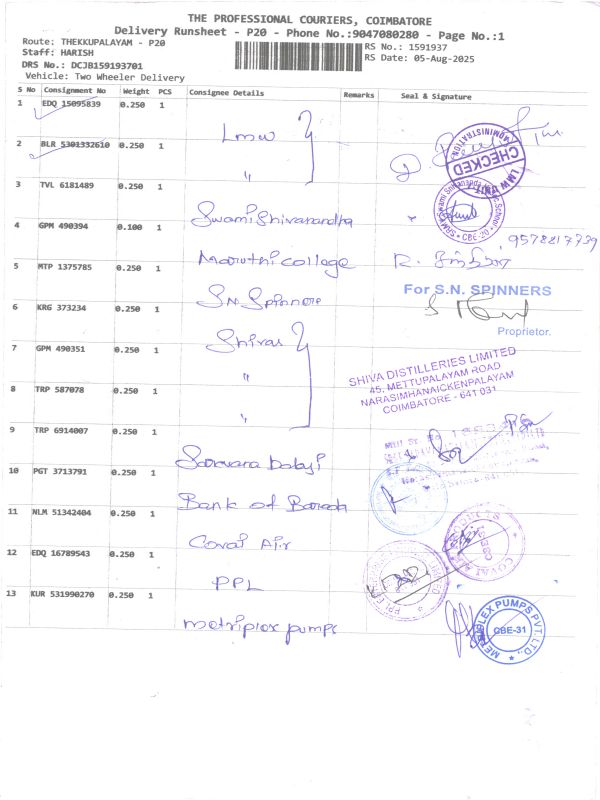 THE PROFESSIONAL COURIERS, COIMBATORE
Delivery Runsheet - P20 - Phone No.:9047080280 - Page No.:1
Route: THEKKUPALAYAM - P20
Staff: HARISH
DRS No.: DCJB159193701
Vehicle: Two Wheeler Delivery
RS No.: 1591937
RS Date: 05-Aug-2025
S No Consignment No Weight PCS Consignee Details Remarks Seal & Signature
1 EDQ 15095839 0.250 1 Lmw
2 BLR 5301332610 0.250 1 "
CHECKED
LMW UNIT
ADMINISTRATION
3 TVL 6181489 0.250 1 Swami Shivanandha
CBE-20
4 GPM 490394 0.100 1 Maruthi college
9578217739
5 MTP 1375785 0.250 1 S.N. Spinners
For S.N. SPINNERS
Proprietor.
6 KRG 373234 0.250 1 Shivas
7 GPM 490351 0.250 1 "
8 TRP 587078 0.250 1 "
SHIVA DISTILLERIES LIMITED
45, METTUPALAYAM ROAD
NARASIMHANAICKENPALAYAM
COIMBATORE - 641 031
9 TRP 6914007 0.250 1 Saravana balaji
10 PGT 3713791 0.250 1 Bank of Baroda
11 NLM 51342404 0.250 1 Covai Air
12 EDQ 16789543 0.250 1 PPL
13 KUR 531990270 0.250 1 metriplex pumps
METRIPLEX PUMPS PVT. LTD.,
CBE-31